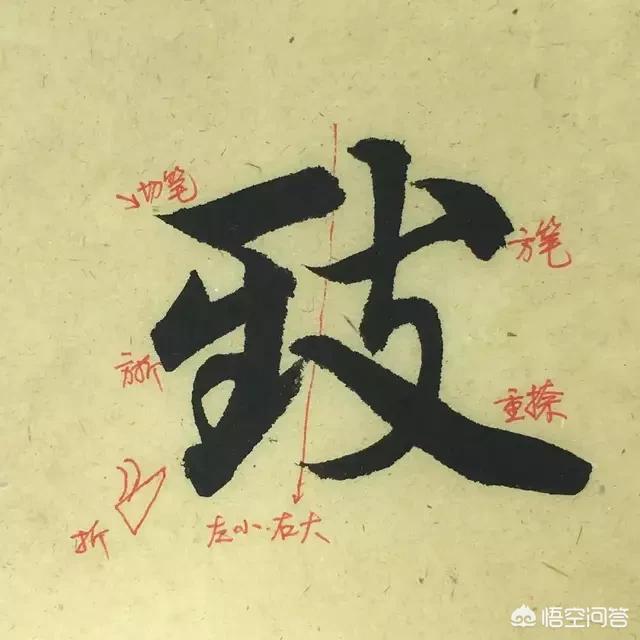 致
切笔
方笔
方折
重捺
折
左小右大
悟空问答